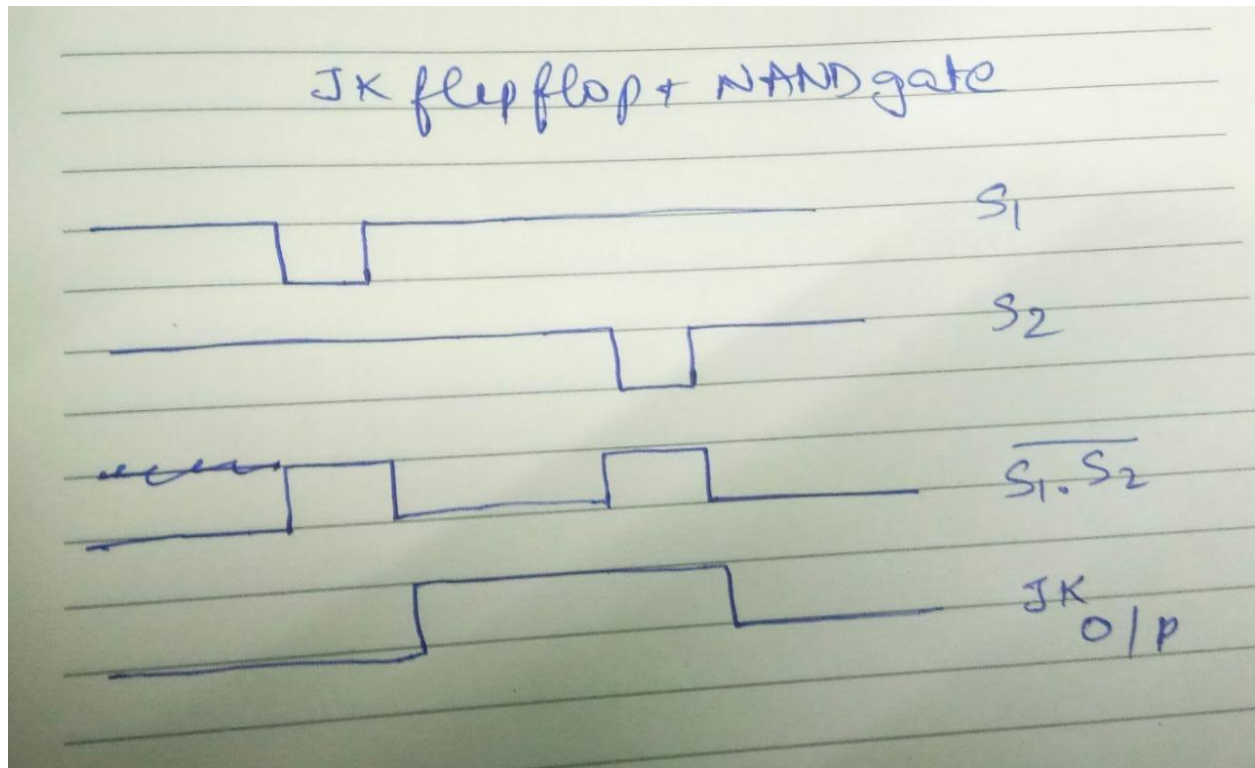 JK flipflop + NAND gate
S1
S2
S̅1̅.̅ ̅S̅2̅
JK
O/P